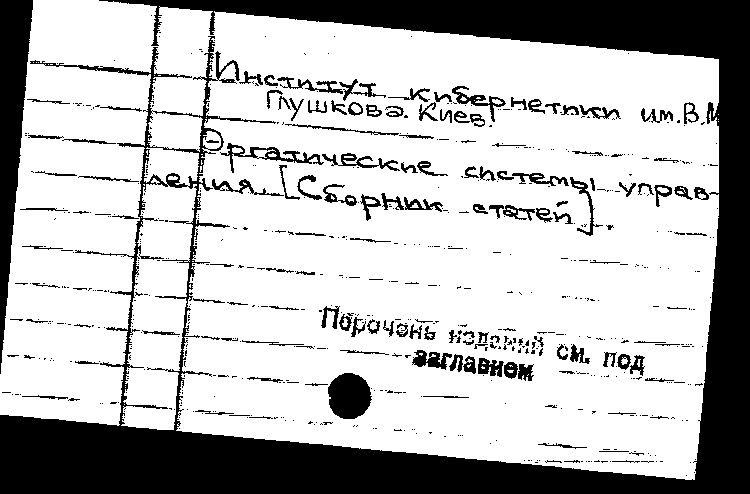 Институт кибернетики им. В.М
Глушкова. Киев.
Эргатические системы управ-
ления. [Сборник статей].
Перечень изданий см. под
заглавием